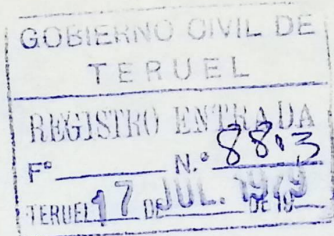 GOBIERNO CIVIL DE
TERUEL
REGISTRO ENTRADA
Fº N.º 8813
TERUEL 17 DE JUL. 1979 DE 19